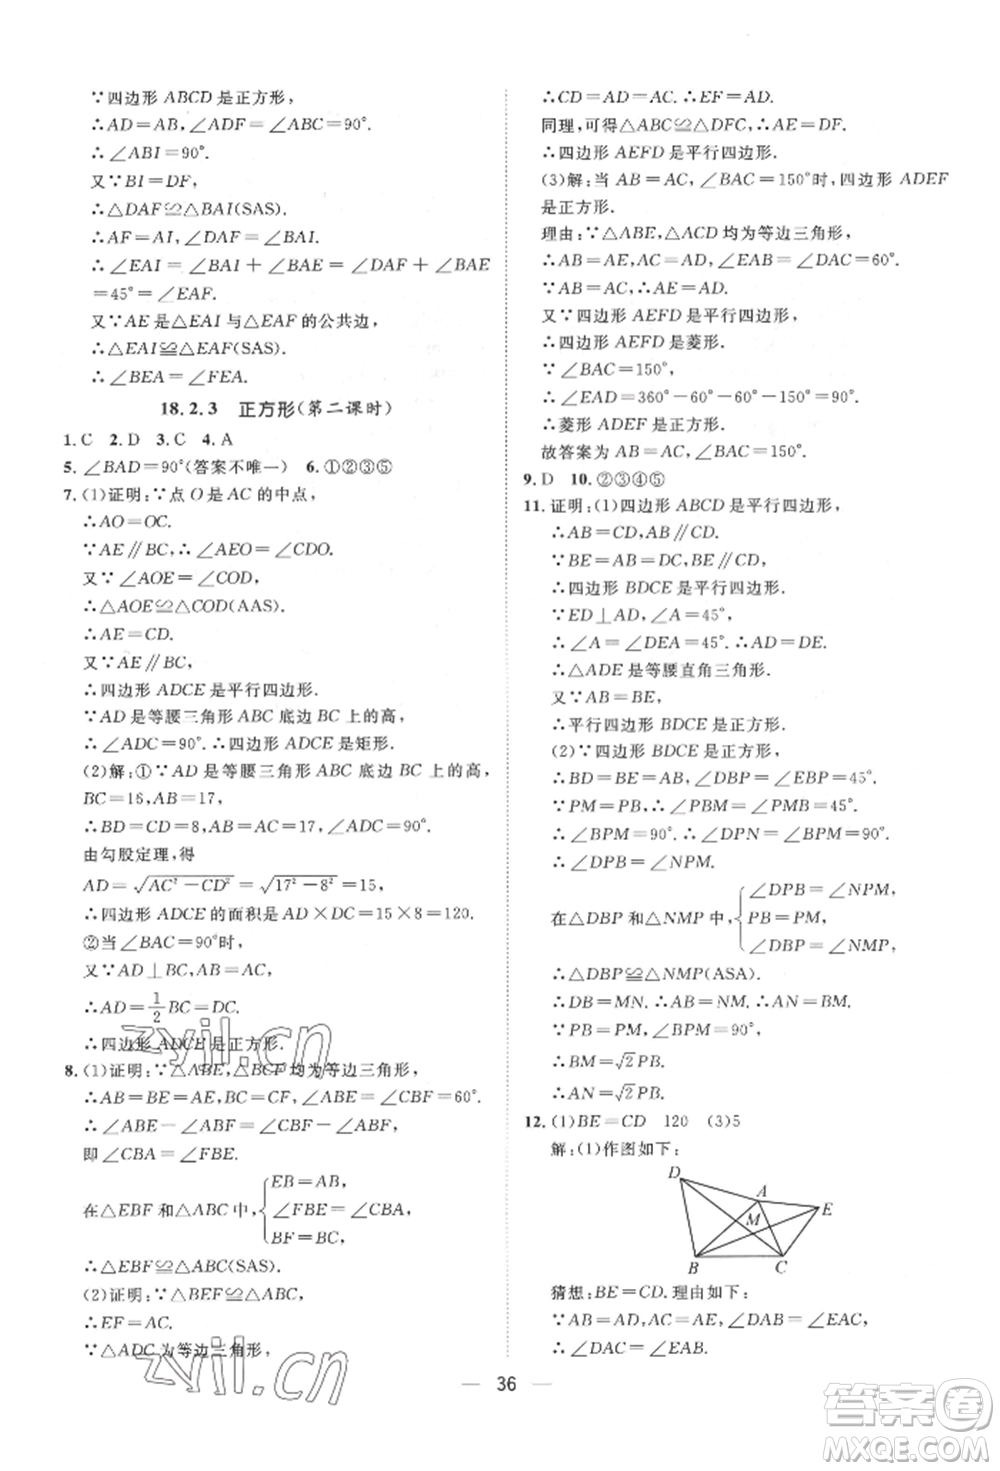 ∵四边形 ABCD 是正方形，
∴AD＝AB，∠ADF＝∠ABC＝90°．
∴∠ABI＝90°．
又∵BI＝DF，
∴△DAF≌△BAI(SAS)．
∴AF＝AI，∠DAF＝∠BAI．
∴∠EAI＝∠BAI＋∠BAE＝∠DAF＋∠BAE
＝45°＝∠EAF．
又∵AE是△EAI与△EAF的公共边，
∴△EAI≌△EAF(SAS)．
∴∠BEA＝∠FEA．
18.2.3 正方形(第二课时)
1. C 2. D 3. C 4. A
5. ∠BAD＝90°(答案不唯一) 6. ①②③⑤
7. (1)证明：∵点O是AC的中点，
∴AO＝OC．
∵AE∥BC，∴∠AEO＝∠CDO．
又∵∠AOE＝∠COD，
∴△AOE≌△COD(AAS)．
∴AE＝CD．
又∵AE∥BC，
∴四边形ADCE是平行四边形．
∵AD是等腰三角形ABC底边BC上的高，
∴∠ADC＝90°．∴四边形ADCE是矩形．
(2)解：①∵AD是等腰三角形ABC底边BC上的高，
BC＝16，AB＝17，
∴BD＝CD＝8，AB＝AC＝17，∠ADC＝90°．
由勾股定理，得
AD＝√(AC²－CD²)＝√(17²－8²)＝15，
∴四边形ADCE的面积是AD×DC＝15×8＝120．
②当∠BAC＝90°时，
又∵AD⊥BC，AB＝AC，
∴AD＝1/2 BC＝DC．
∴四边形ADCE是正方形．
8. (1)证明：∵△ABE，△BCF均为等边三角形，
∴AB＝BE＝AE，BC＝CF，∠ABE＝∠CBF＝60°．
∴∠ABE－∠ABF＝∠CBF－∠ABF，
即∠CBA＝∠FBE．
在△EBF和△ABC中，{EB＝AB，
∠FBE＝∠CBA，
BF＝BC，
∴△EBF≌△ABC(SAS)．
(2)证明：∵△BEF≌△BAC，
∴EF＝AC．
∵△ADC为等边三角形，
∴CD＝AD＝AC．∴EF＝AD．
同理，可得△ABC≌△DFC，∴AE＝DF．
∴四边形AEFD是平行四边形．
(3)解：当AB＝AC，∠BAC＝150°时，四边形ADEF
是正方形．
理由：∵△ABE，△ACD均为等边三角形，
∴AB＝AE，AC＝AD，∠EAB＝∠DAC＝60°．
∵AB＝AC，∴AE＝AD．
又∵四边形AEFD是平行四边形，
∴四边形AEFD是菱形．
∵∠BAC＝150°，
∴∠EAD＝360°－60°－60°－150°＝90°．
∴菱形ADEF是正方形．
故答案为AB＝AC，∠BAC＝150°．
9. D 10. ②③④⑤
11. 证明：(1)四边形ABCD是平行四边形，
∴AB＝CD，AB∥CD．
∵BE＝AB＝DC，BE∥CD，
∴四边形BDCE是平行四边形．
∵ED⊥AD，∠A＝45°，
∴∠A＝∠DEA＝45°．∴AD＝DE．
∴△ADE是等腰直角三角形．
又∵AB＝BE，
∴平行四边形BDCE是正方形．
(2)∵四边形BDCE是正方形，
∴BD＝BE，∠DBP＝∠EBP＝45°．
∵PM＝PB，∴∠PBM＝∠PMB＝45°．
∴∠BPM＝90°．∴∠DPN＝∠BPM＝90°．
∴∠DPB＝∠NPM．
在△DBP和△NMP中，{∠DPB＝∠NPM，
PB＝PM，
∠DBP＝∠NMP，
∴△DBP≌△NMP(ASA)．
∴DB＝MN．∴AB＝MN．∴AN＝BM．
∵PB＝PM，∠BPM＝90°，
∴BM＝√2PB．
∴AN＝√2PB．
12. (1)BE＝CD 120 (3)5
解：(1)作图如下：
D
A
M
E
B C
猜想：BE＝CD．理由如下：
∵AB＝AD，AC＝AE，∠DAB＝∠EAC，
∴∠DAC＝∠EAB．
36
zyjl.cn
zyjl.cn
答案圈
MXQE.COM